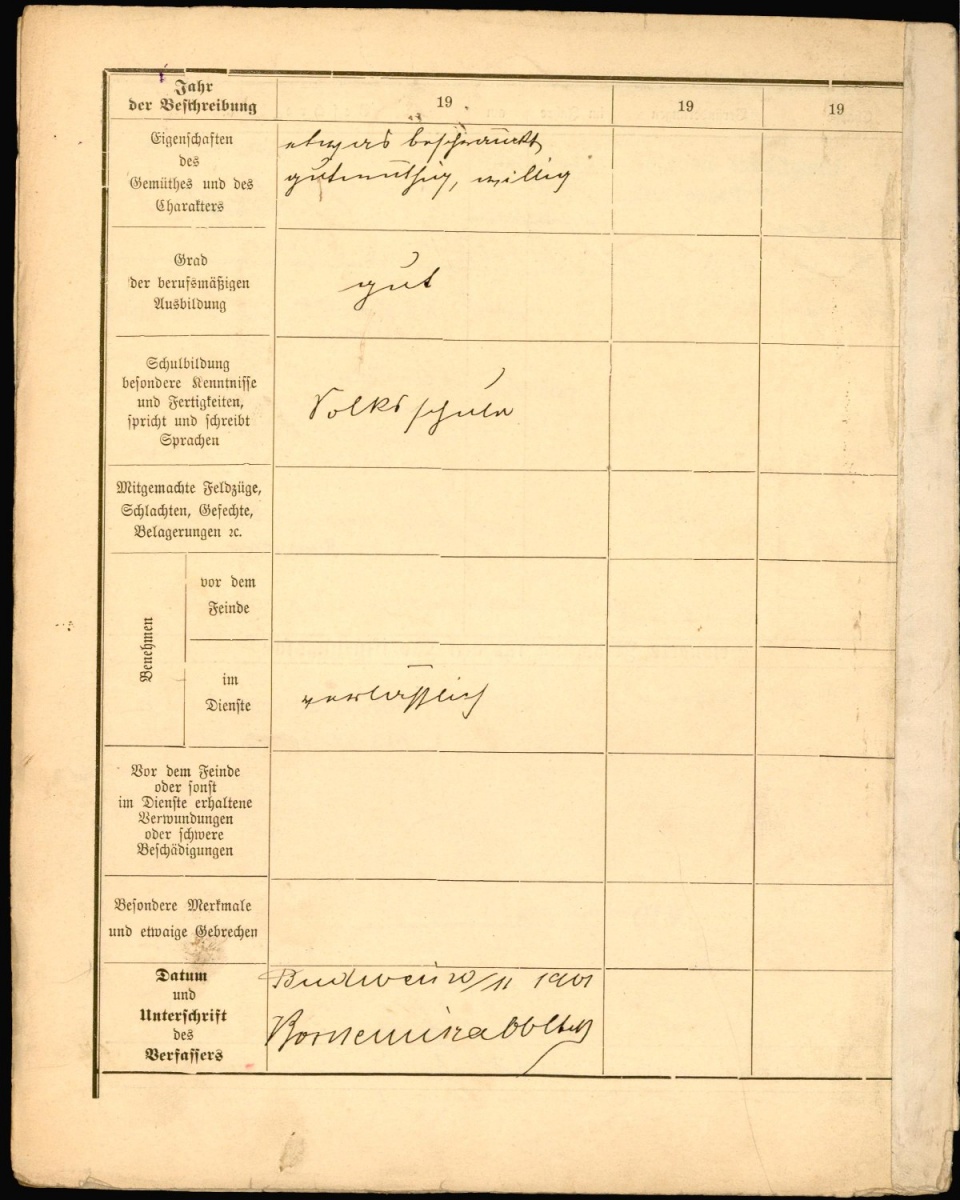 Jahr
der Beschreibung
19
19
19
Eigenschaften
des
Gemüthes und des
Charakters
etwas beschränkt
gutmüthig, willig
Grad
der berufsmäßigen
Ausbildung
gut
Schulbildung
besondere Kenntnisse
und Fertigkeiten,
spricht und schreibt
Sprachen
Volksschule
Mitgemachte Feldzüge,
Schlachten, Gefechte,
Belagerungen ꝛc.
Benehmen
vor dem
Feinde
im
Dienste
verlässlich
Vor dem Feinde
oder sonst
im Dienste erhaltene
Verwundungen
oder schwere
Beschädigungen
Besondere Merkmale
und etwaige Gebrechen
Datum
und
Unterschrift
des
Verfassers
Budweis /11 1901